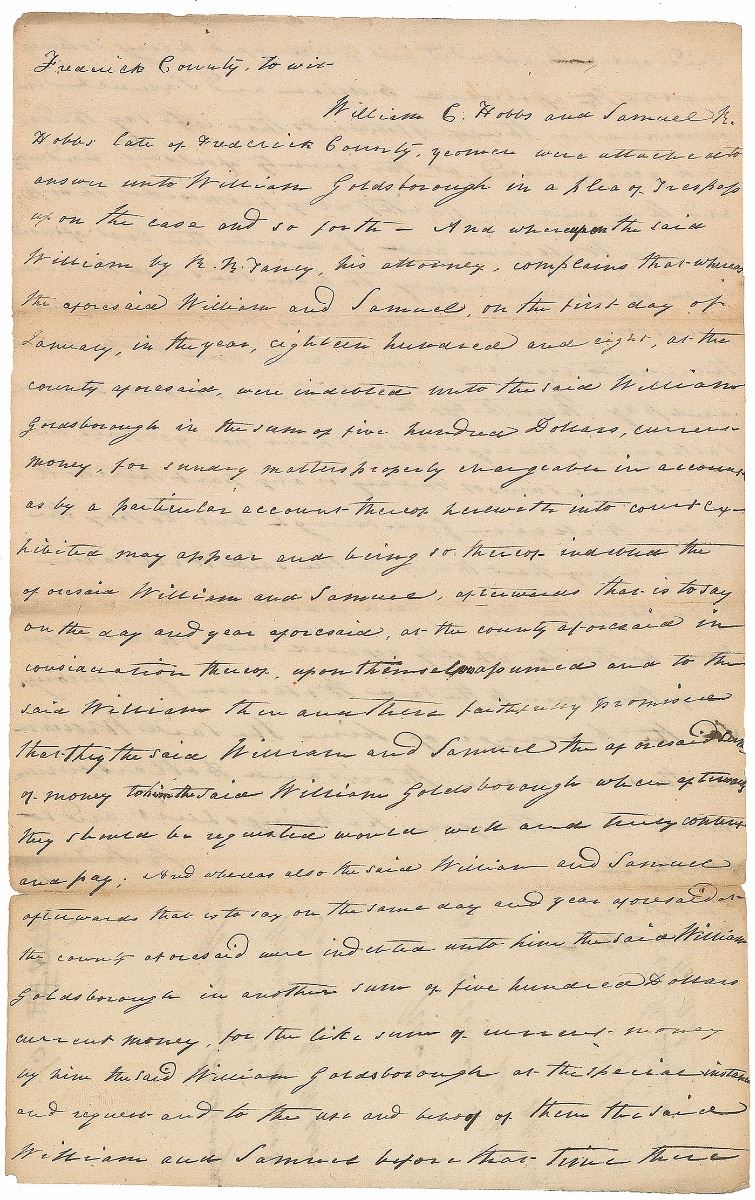 Frederick County, to wit
William C. Hobbs and Samuel R.
Hobbs late of Frederick County, yeomen were attached to
answer unto William Goldsborough in a plea of Trespass
upon the case and so forth – And whereupon the said
William by R. B. Taney, his attorney, complains that whereas
the aforesaid William and Samuel, on the first day of
January, in the year, eighteen hundred and eight, at the
county aforesaid, were indebted unto the said William
Goldsborough in the sum of five hundred Dollars, current
money, for sundry matters properly chargeable in account
as by a particular account thereof herewith into court ex-
hibited may appear and being so thereof indebted the
aforesaid William and Samuel, afterwards that is to say
on the day and year aforesaid, at the county aforesaid in
consideration thereof, upon themselves assumed and to the
said William then and there faithfully promised
that they the said William and Samuel the aforesaid sum
of money to him the said William Goldsborough when afterwards
they should be requested would well and truly content
and pay; And whereas also the said William and Samuel
afterwards that is to say on the same day and year aforesaid at
the county aforesaid were indebted unto him the said William
Goldsborough in another sum of five hundred Dollars
current money, for the like sum of current money
by him the said William Goldsborough at the special instance
and request and to the use and behoof of them the said
William and Samuel before that time there